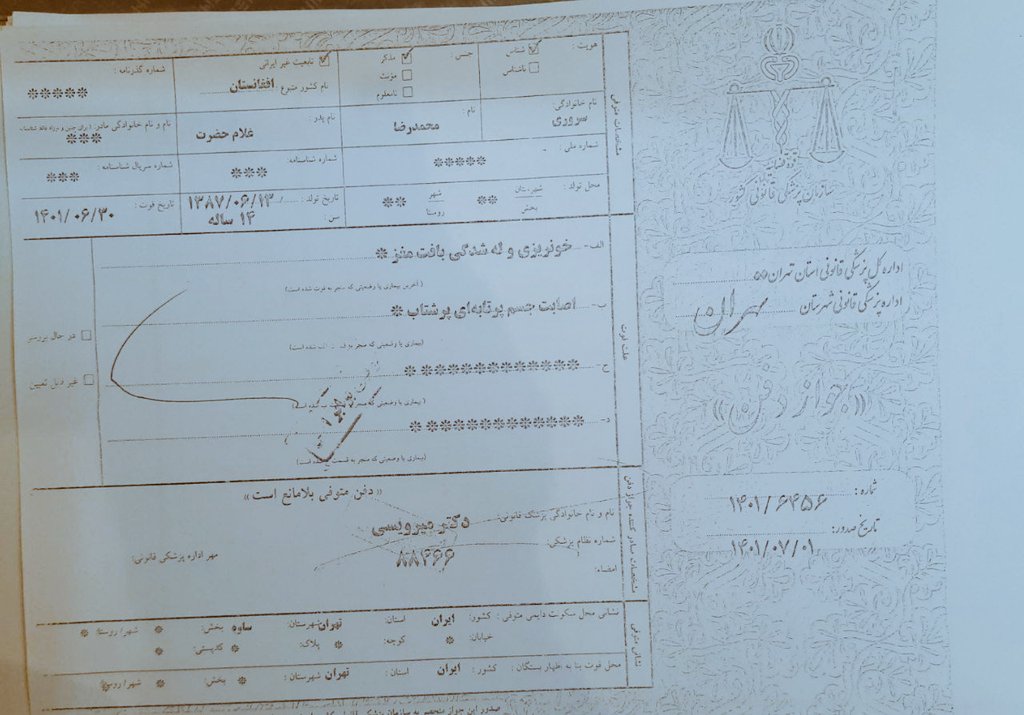 قوه قضائیه
سازمان پزشکی قانونی کشور
اداره کل پزشکی قانونی استان تهران
اداره پزشکی قانونی شهرستان تهران
«جواز دفن»
شماره: ۱۴۰۱/۶۴۵۶
تاریخ صدور: ۱۴۰۱/۰۷/۰۱
مشخصات متوفی
هویت: شناس ناشناس
جنس: مذکر مونث نامعلوم
تابعیت غیر ایرانی
نام کشور متبوع افغانستان
شماره گذرنامه: *****
نام خانوادگی: سروری
نام: محمدرضا
نام پدر: غلام حضرت
نام و نام خانوادگی مادر: ***
شماره ملی: *****
شماره شناسنامه: ***
شماره سریال شناسنامه: ***
محل تولد: شهرستان بخش ** شهر روستا **
تاریخ تولد: ۱۳۸۷/۰۶/۱۳
سن: ۱۴ ساله
تاریخ فوت: ۱۴۰۱/۰۶/۳۰
علت فوت
الف- خونریزی و له شدگی بافت مغز *
(آخرین بیماری یا وضعیتی که منجر به فوت شده است)
ب- اصابت جسم پرتابه‌ای پرشتاب *
(بیماری یا وضعیتی که منجر به قسمت الف شده است)
ج- ************ *
(بیماری یا وضعیتی که منجر به قسمت ب شده است)
د- ************ *
(بیماری یا وضعیتی که منجر به قسمت شده است)
در حال بررسی
غیر قابل تعیین
مشخصات صادر کننده جواز دفن
«دفن متوفی بلامانع است»
نام و نام خانوادگی پزشک قانونی: دکتر میرویسی
شماره نظام پزشکی: ۸۸۴۶۶
امضاء:
مهر اداره پزشکی قانونی:
نشانی متوفی
نشانی محل سکونت دایمی متوفی: کشور: ایران استان: تهران شهرستان: ساوه بخش: * شهر/روستا: *
خیابان: * کوچه: * پلاک: * کدپستی: *
محل فوت بنا به اظهار بستگان: کشور: ایران استان: تهران شهرستان: * بخش: * شهر/روستا: *